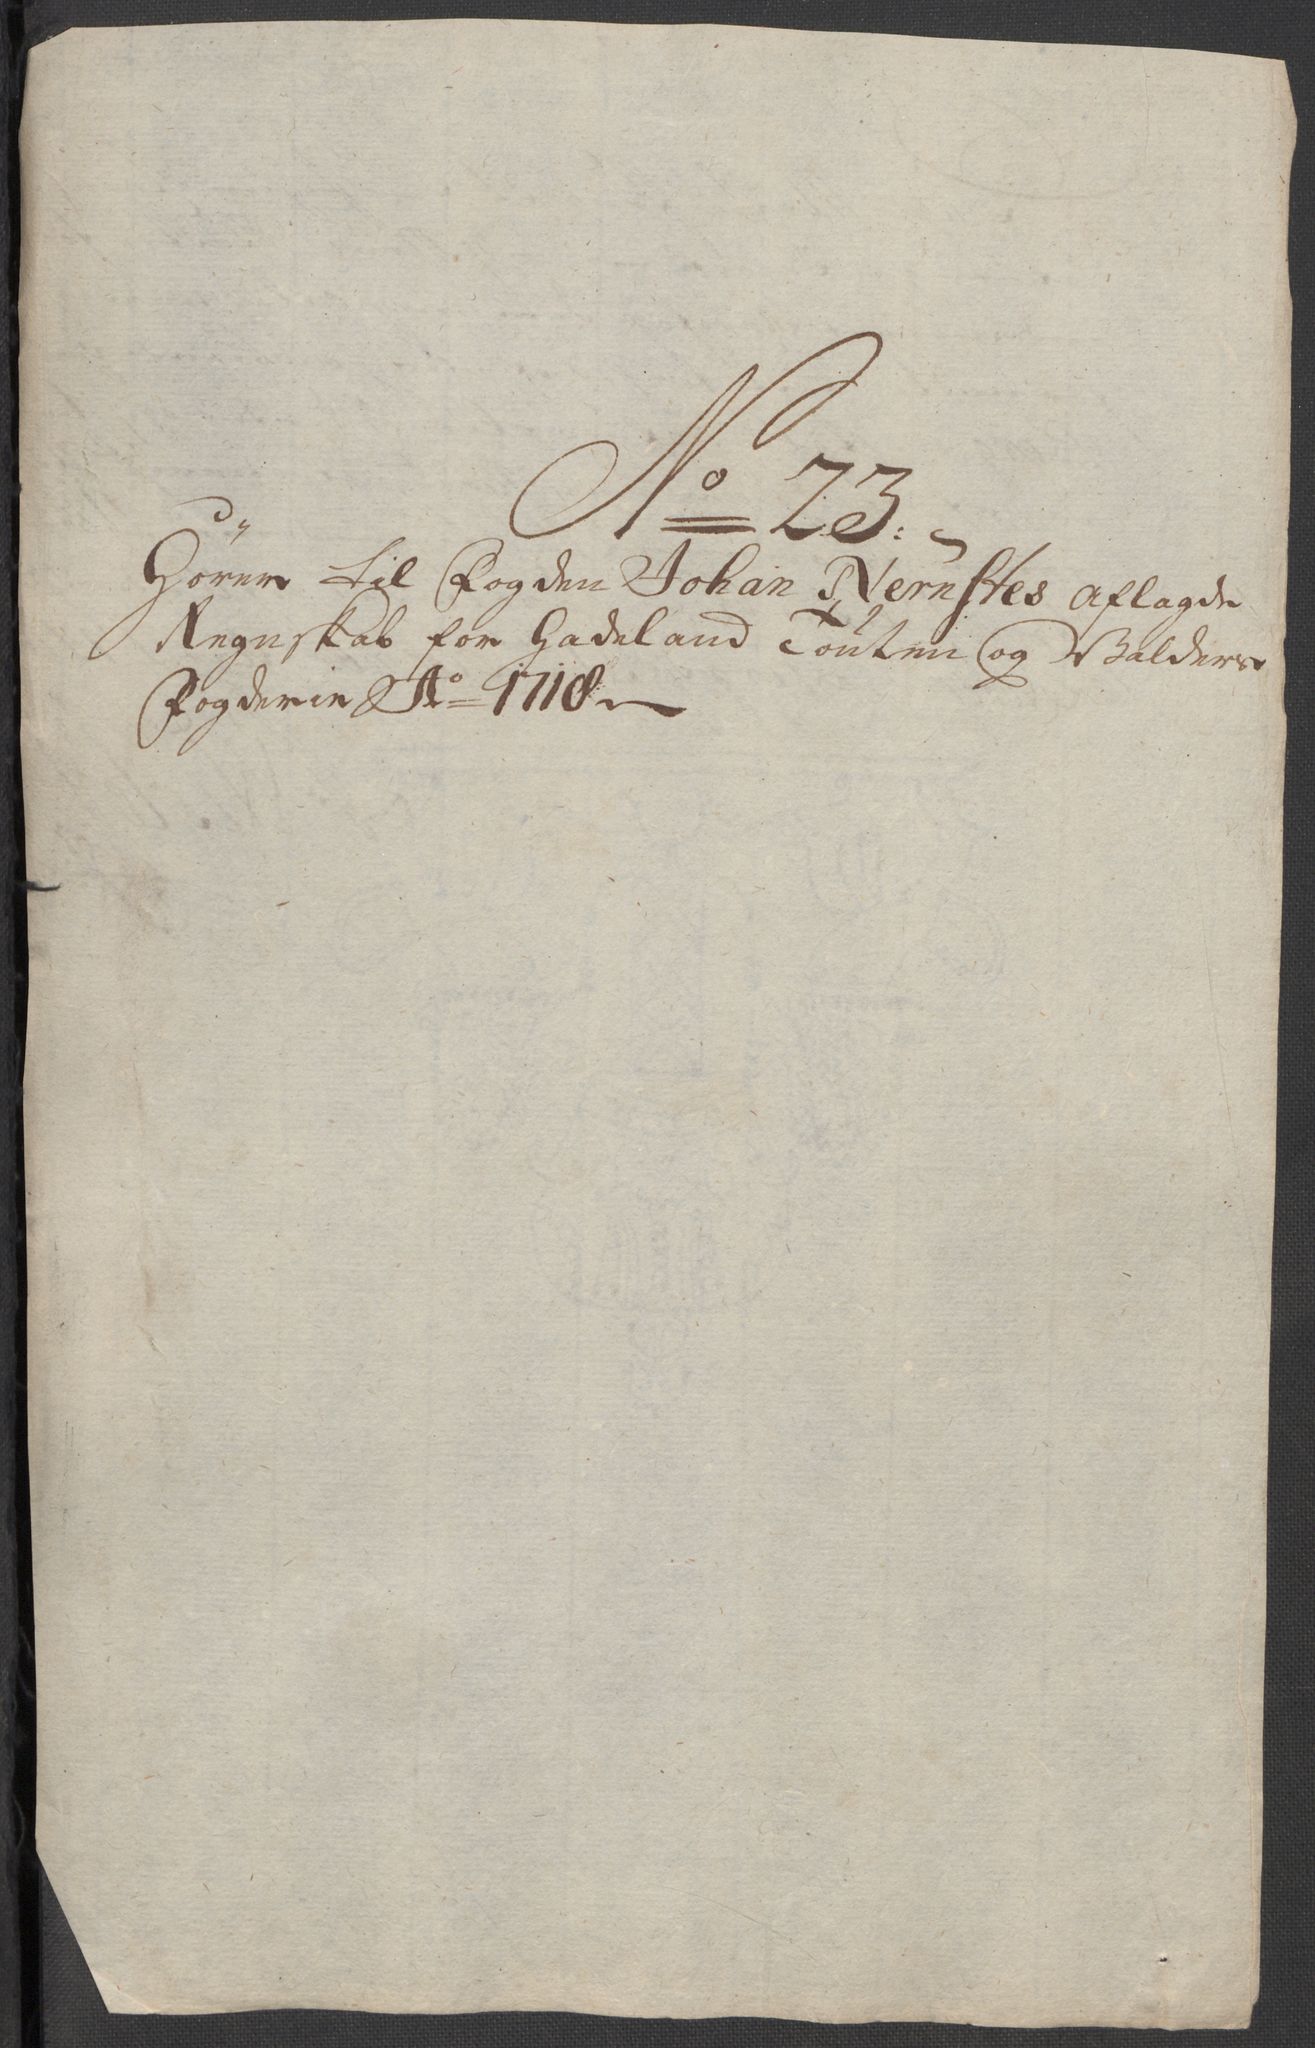 No 23.
Hörer til Fogden Johan Nernstes aflagde
Regnskab for Hadeland Touten og Valders
Fogderie Ao 1718